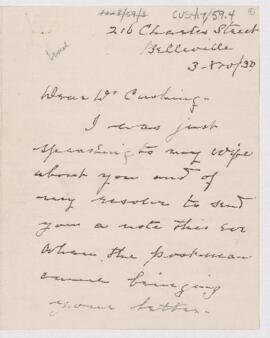 CUS417/59.4
216 Charles Street
Belleville
3-Nov/30
Dear Dr Cushing -
I was just
speaking to my wife
about you and of
my resolve to send
you a note this Eve
when the post-man
came bringing
your letter -